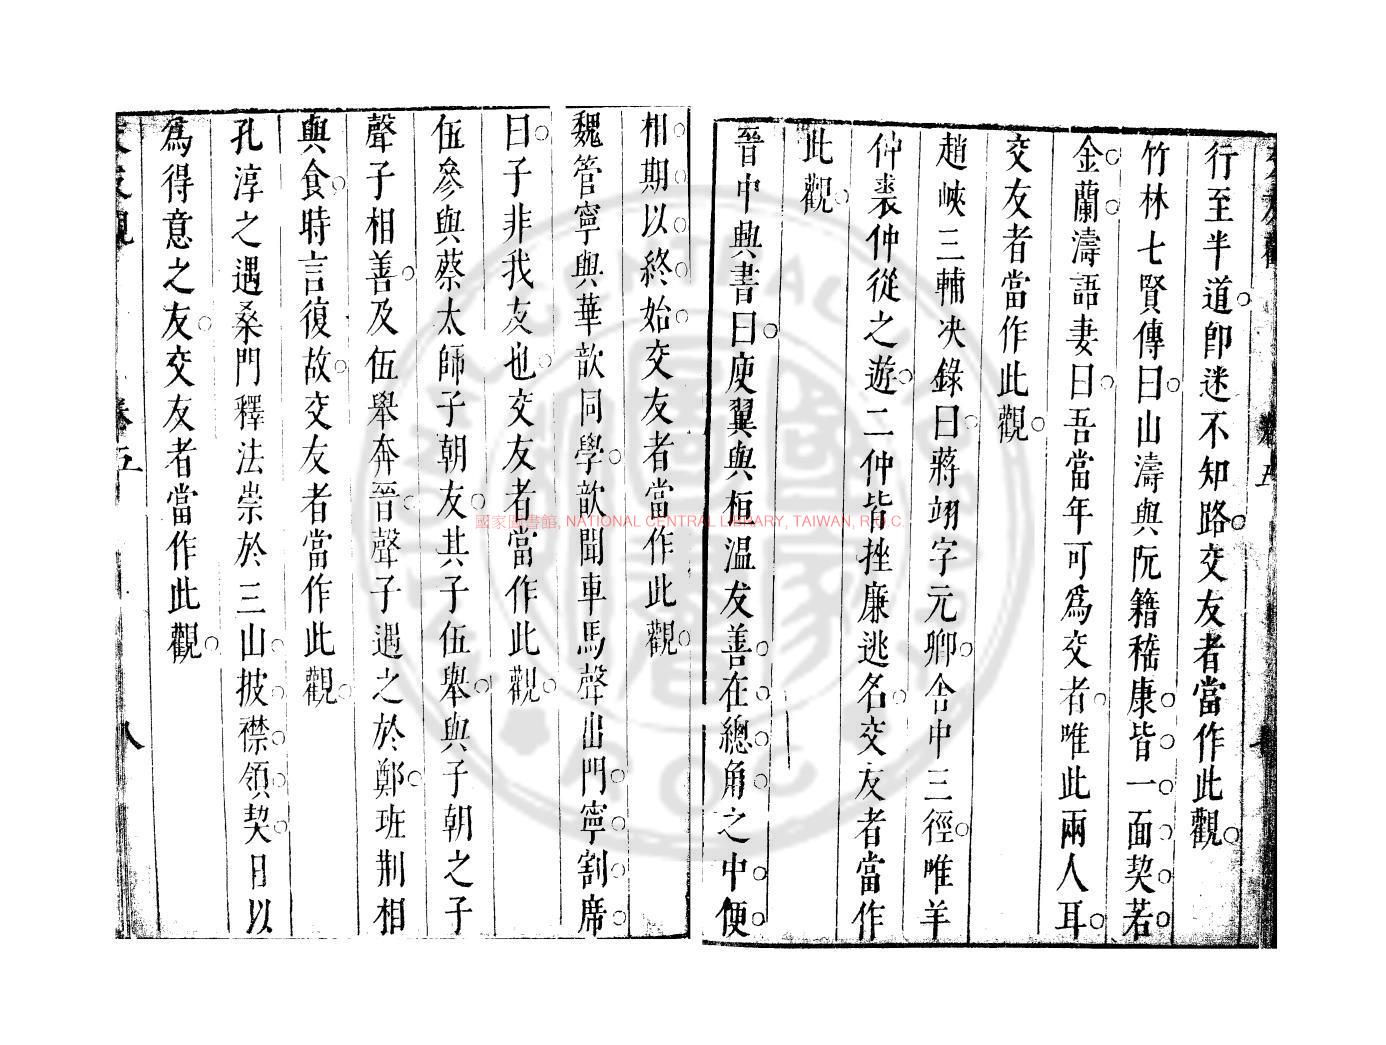 行至半道卽迷不知路交友者當作此觀
竹林七賢傳曰山濤與阮籍嵇康皆一面契若
金蘭濤語妻曰吾當年可爲交者唯此兩人耳
交友者當作此觀
趙岐三輔決錄曰蔣翊字元卿舍中三徑唯羊
仲裘仲從之遊二仲皆挫廉逃名交友者當作
此觀
晉中興書曰庾翼與桓溫友善在總角之中便
相期以終始交友者當作此觀
魏管寧與華歆同學歆聞車馬聲出門寧割席
曰子非我友也交友者當作此觀
伍參與蔡太師子朝友其子伍舉與子朝之子
聲子相善及伍舉奔晉聲子遇之於鄭班荆相
與食時言復故交友者當作此觀
孔淳之遇桑門釋法崇於三山披襟領契日以
爲得意之友交友者當作此觀
卷五
八
國家圖書館, NATIONAL CENTRAL LIBRARY, TAIWAN, R.O.C.